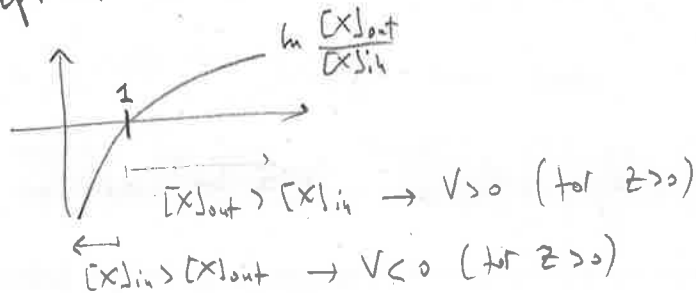 ln [X]out / [X]in
1
[X]out > [X]in → V>0 (for z>0)
[X]in > [X]out → V<0 (for z>0)